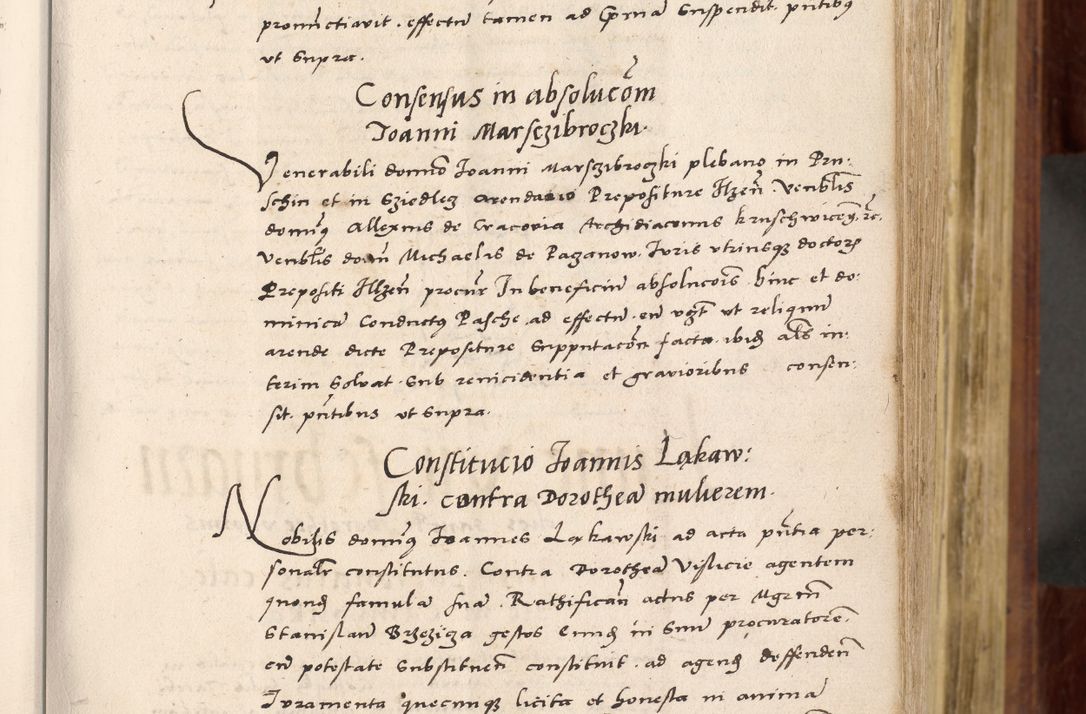 pronunctiavit . effectu tamen ad Cprima suspendit . pntibus
ut supra.
Consensus in absolucom
Joanni Marsczibroczki.
Venerabili domino Joanni Marszibroczki plebano in Pru:
schin et in Sziedlecz arendario Prepositure Ilzen . Venblis
dominus Allexius de Cracovia Archidiaconus Kruschwicen etc.
Venblis domin Michaelis de Paganow . Juris utriusque doctoris
Prepositi Illzen procur In beneficium absolucois . hinc et do:
minicu Conductus Pasche . ad effectu . eu ut reliquum
arende dicte Prepositure Supputacon facta . ibid als in:
terim Solvat . Sub reincidentia et gravioribus consen:
sit . pntibus ut supra.
Constitucio Joannis Ląkaw:
ski . contra Dorothea mulierem.
Nobilis dominus Joannes Ląkawski ad acta pntia per:
sonalr constitutus . Contra Dorothea Vislicie agentem
quond famula sua . Rathifican actus per Mgrm
Stanislau Brzezicza gestos Eund in Suum procuratore.
cu potestate Substituen constituit . ad agend deffenden
Juramenta quecunque licita et honesta in anima